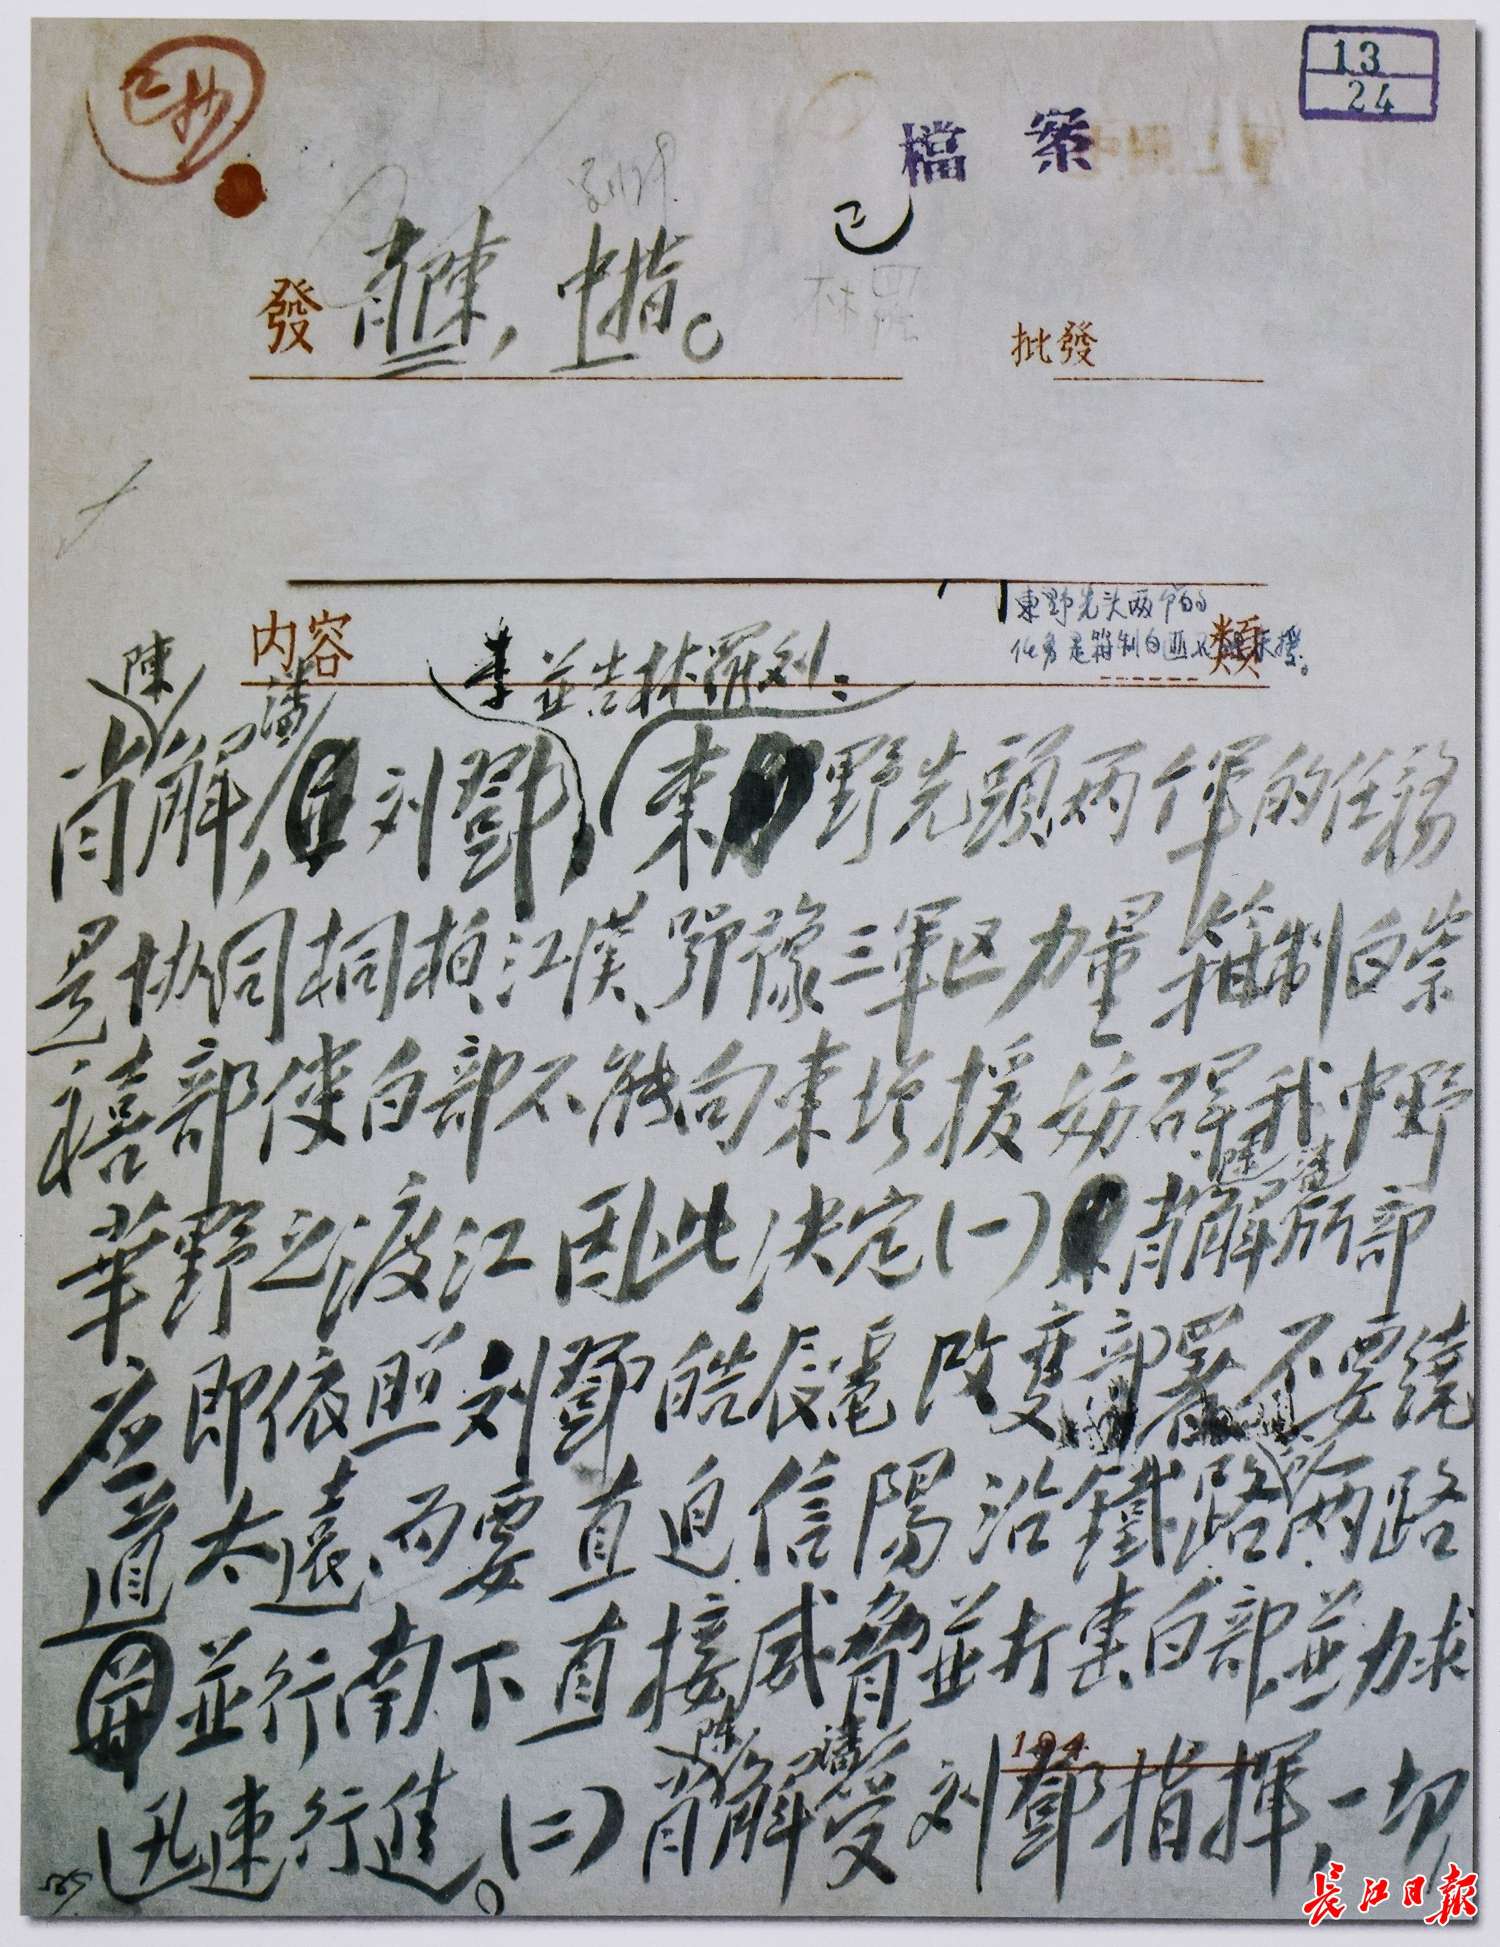 已抄
13
24
檔案
已
發 肖陳,中指。
林羅
批發
內容
類
東野先头两个的
任务是箝制白匪
陳 潘 李並告林羅刘:
肖解,刘鄧,東野先頭两个軍的任務
是协同桐柏江漢鄂豫三軍区力量箝制白崇
禧部使白部不能向東增援妨碍我中野
陳 潘
華野之渡江因此决定(一)肖解所部
应即依照刘鄧皓辰電改變部署不要繞
道太遠,而要直迫信陽沿鐵路两路
並行南下直接威脅並打击白部,並力求
陳 潘
194
迅速行進。(二)肖解受刘鄧指揮,一切
長江日報